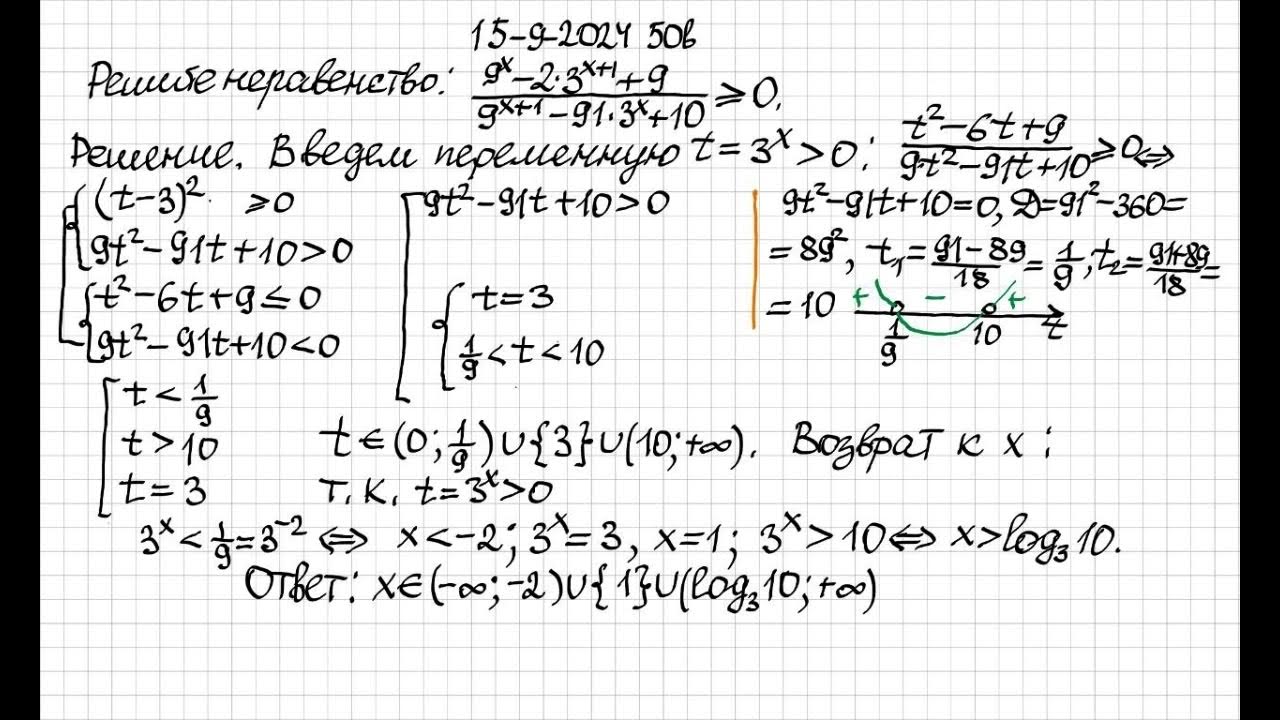 15-9-2024 50в
Решибе неравенство: (9^x-2·3^(x+1)+9)/(9^(x+1)-91·3^x+10) ⩾ 0.
Решение. Введем переменную t=3^x>0: (t²-6t+9)/(9t²-91t+10) ⩾ 0 ⇔
[ { (t-3)² ⩾ 0
9t²-91t+10>0
{ t²-6t+9 ≤ 0
9t²-91t+10<0
[ 9t²-91t+10>0
{ t=3
1/9<t<10
9t²-91t+10=0, D=91²-360=
=89², t₁=(91-89)/18=1/9; t₂=(91+89)/18=
=10
+ - +
1/9 10 t
[ t<1/9
t>10
t=3
t∈(0;1/9)∪{3}∪(10;+∞). Возврат к x:
т.к. t=3^x>0
3^x<1/9=3^-2 ⇔ x<-2; 3^x=3, x=1; 3^x>10 ⇔ x>log₃10.
Ответ: x∈(-∞;-2)∪{1}∪(log₃10;+∞)